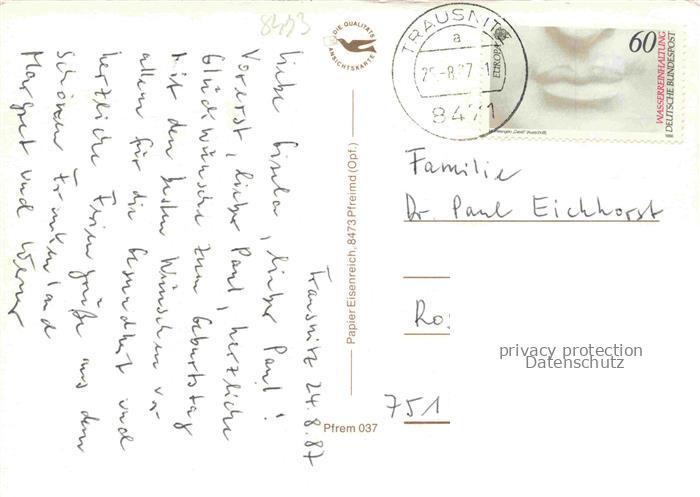 8473
Trausnitz 24.8.87
Liebe Gisela, lieber Paul!
Vorerst, lieber Paul, herzliche
Glückwünsche zum Geburtstag
mit den besten Wünschen vor
allem für die Gesundheit und
herzliche Feriengrüße aus dem
Schönen Frankenland
Margret und Werner
DIE QUALITÄTS
ANSICHTSKARTE
Papier Eisenreich, 8473 Pfreimd (Opf.)
Pfrem 037
TRAUSNITZ
a
8471
EUROPA
60
WASSERREINHALTUNG
DEUTSCHE BUNDESPOST
Familie
Dr. Paul Eichhorst
Ro
751
privacy protection
Datenschutz